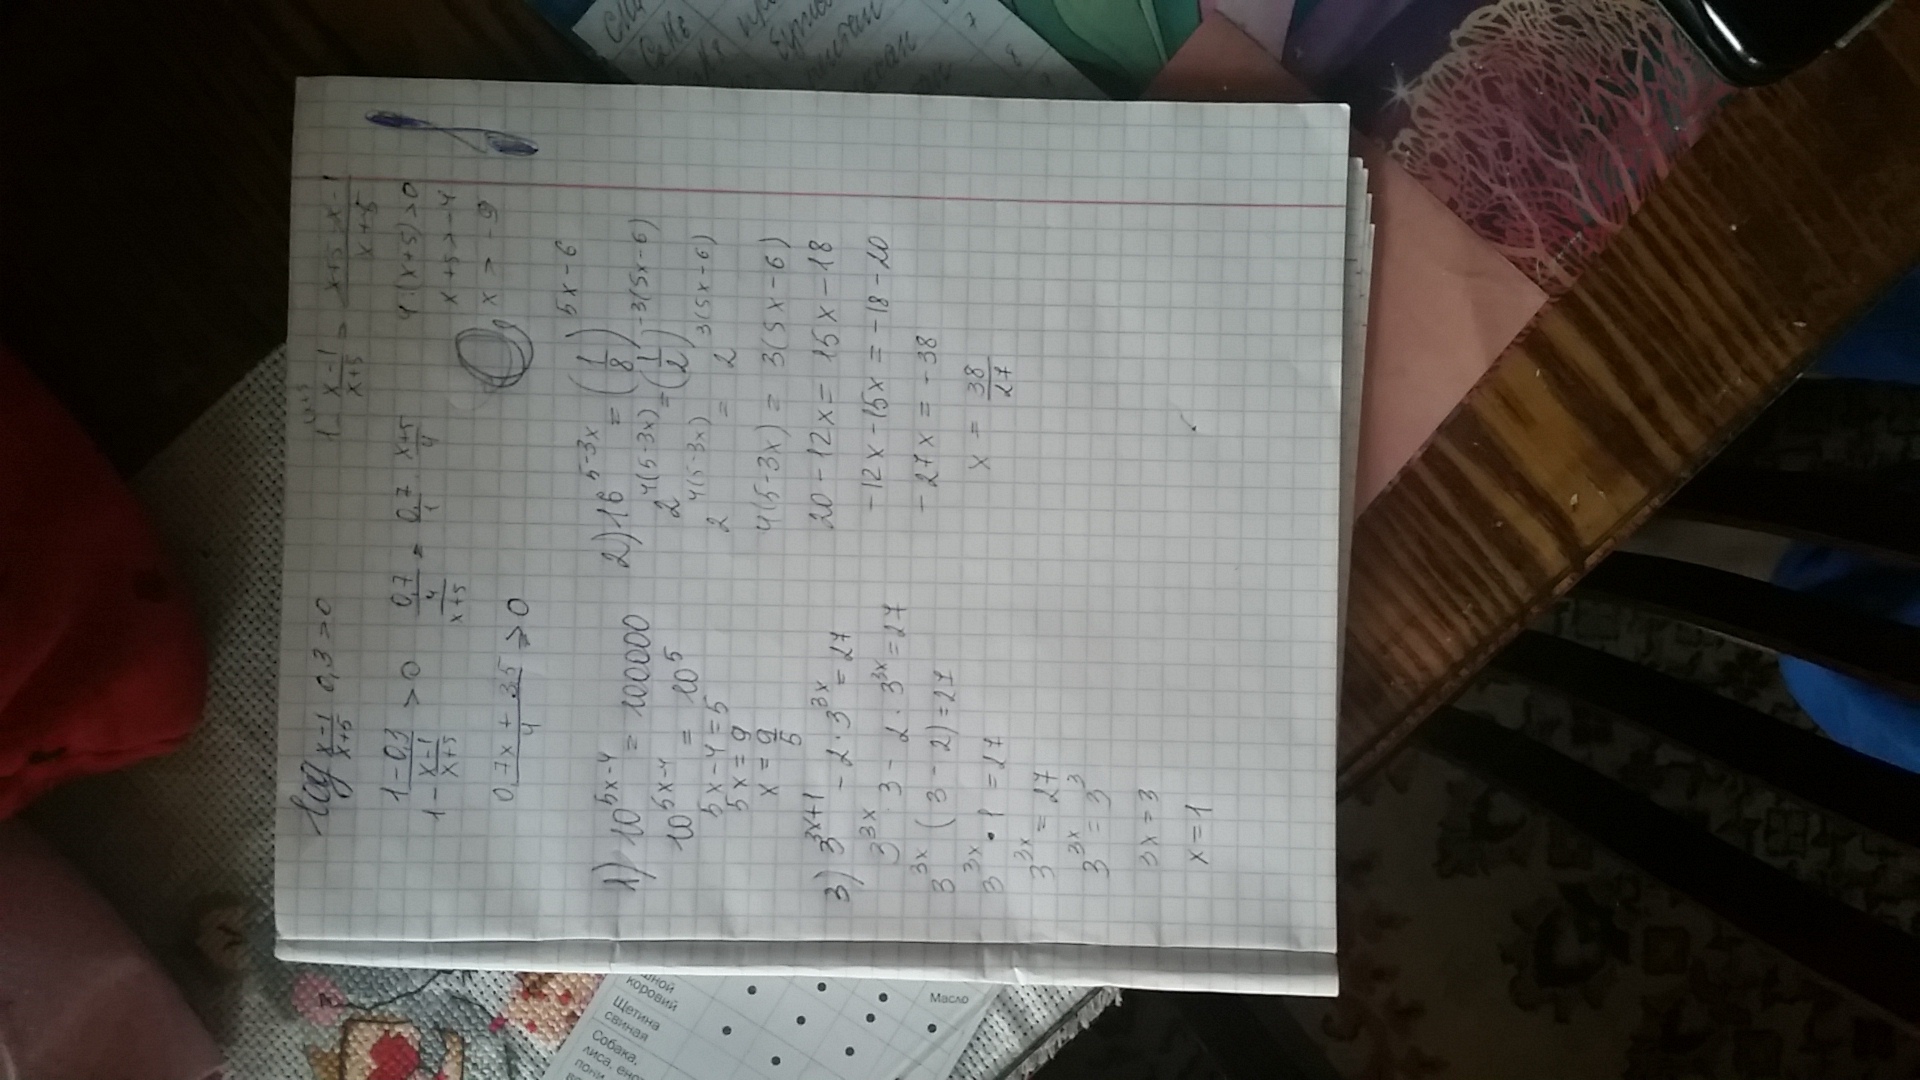 log x-1/x+5 0,3 > 0
1 - x-1/x+5 = x+5-x-1/x+5
1-0,3/1-x-1/x+5 > 0
0,7/4/x+5 = 0,7/1 · x+5/4
4·(x+5)>0
x+5>-4
0,7x+3,5/4 > 0
x > -9
1) 10^5x-4 = 100000
10^5x-4 = 10^5
5x-4=5
5x=9
x=9/5
2) 16^5-3x = (1/8)^5x-6
2^4(5-3x) = (1/2)^-3(5x-6)
2^4(5-3x) = 2^3(5x-6)
4(5-3x) = 3(5x-6)
20-12x = 15x-18
-12x-15x = -18-20
-27x = -38
x = 38/27
3) 3^3x+1 - 2·3^3x = 27
3^3x·3 - 2·3^3x = 27
3^3x(3-2)=27
3^3x·1=27
3^3x=27
3^3x=3^3
3x=3
x=1
коровий
Щетина
свиная
Собака,
лиса, ено
пони
Масло
7
8